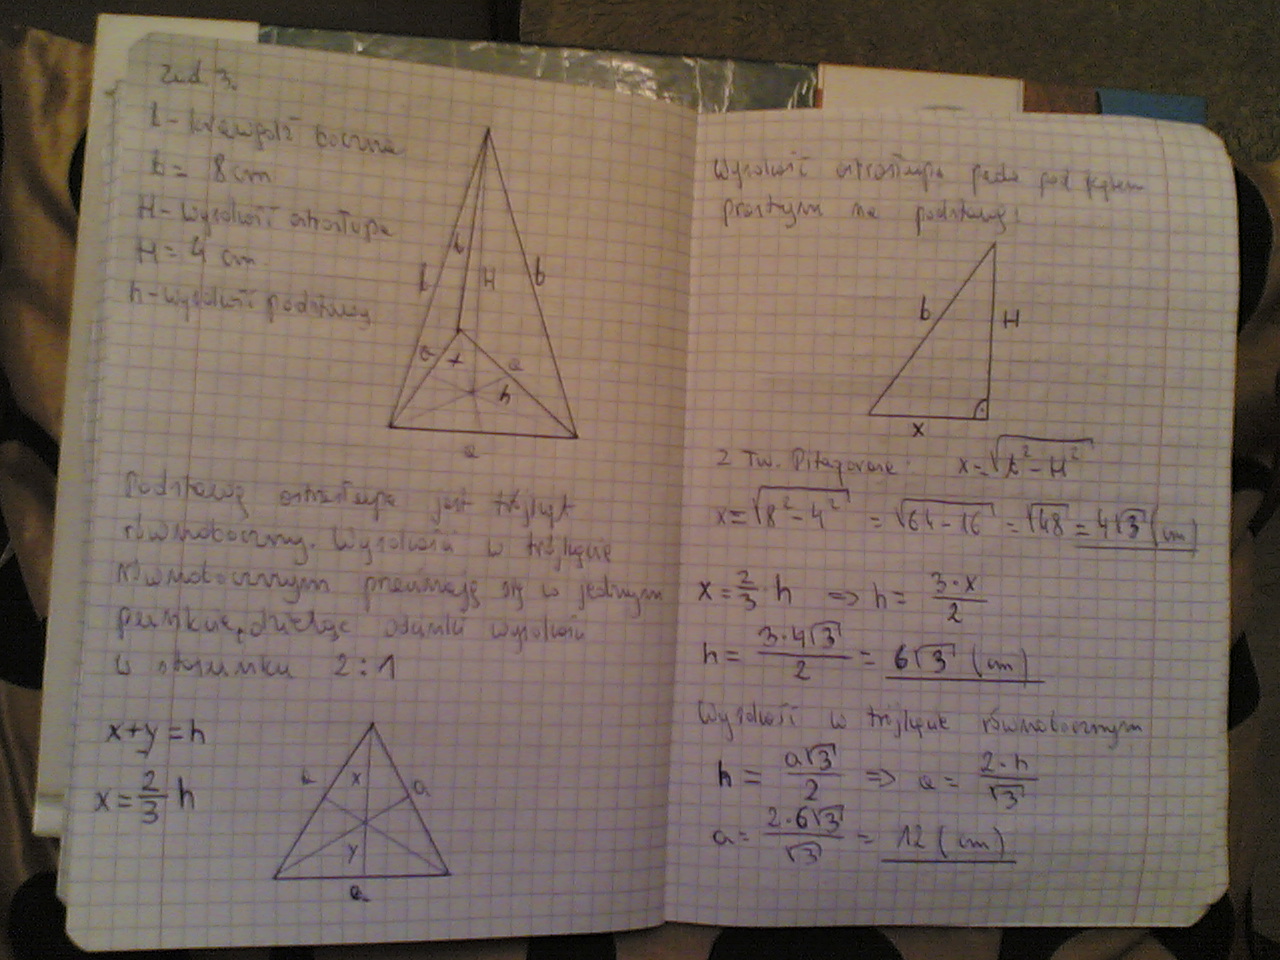 Zad 3.
b - krawędź boczna
b = 8 cm
H - wysokość ostrosłupa
H = 4 cm
h - wysokość podstawy
b
b
b
H
a
x
a
h
a
Podstawą ostrosłupa jest trójkąt
równoboczny. Wysokości w trójkącie
równobocznym przecinają się w jednym
punkcie, dzieląc odcinki wysokości
w stosunku 2:1
x+y=h
x=2/3 h
x
a
y
a
Wysokość ostrosłupa pada pod kątem
prostym na podstawę:
b
H
x
Z Tw. Pitagorasa: x=√b²-H²
x=√8²-4² = √64-16 = √48 = 4√3 (cm)
x=2/3·h => h= 3·x/2
h= 3·4√3/2 = 6√3 (cm)
Wysokość w trójkącie równobocznym
h= a√3/2 => a= 2·h/√3
a= 2·6√3/√3 = 12 (cm)